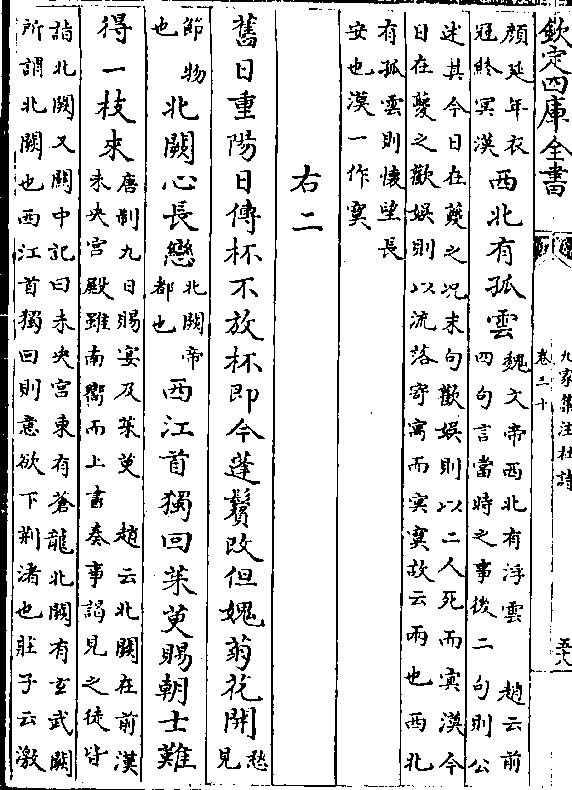 欽定四庫全書
九家集注杜詩
卷三十
顏延年衣
冠終冥漠
西北有孤雲
魏文帝西北有浮雲 趙云前
四句言當時之事後二句則公
述其今日在夔之況末句歡娛則以二人死而冥漠今
日在夔之歡娛則以流落寄寓而冥寞故云兩也西北
有孤雲則懷望長
安也漠一作寞
右二
舊日重陽日傳杯不放杯即今蓬鬢改但媿菊花開
愁
見
節物
也
北闕心長戀
北闕帝
都也
西江首獨回茱萸賜朝士難
得一枝來
唐制九日賜宴及茱萸 趙云北闕在前漢
未央宮殿雖南嚮而上書奏事謁見之徒皆
詣北闕又關中記曰未央宮東有蒼龍北闕有玄武闕
所謂北闕也西江首獨回則意欲下荊渚也莊子云激